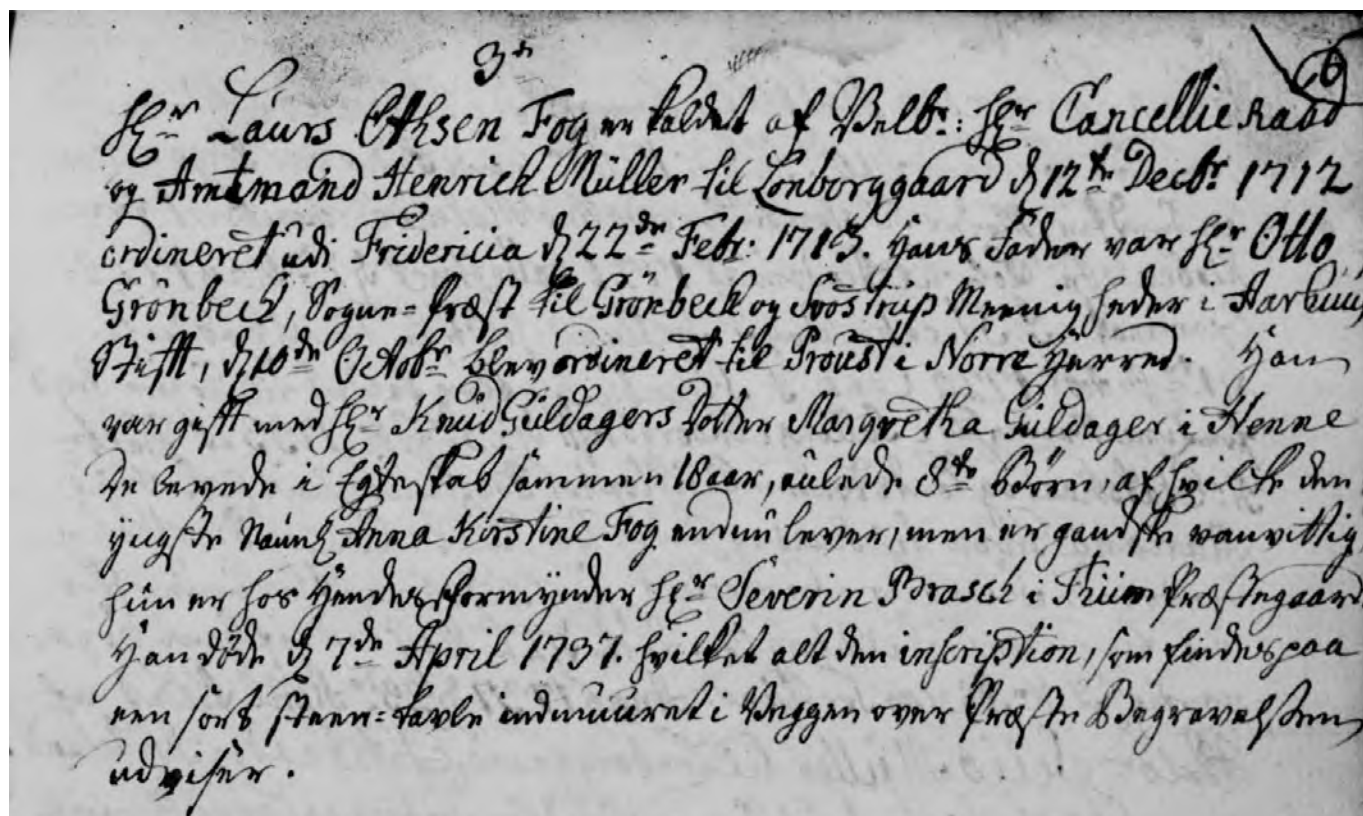 3de
6
Hr. Laurs Othsen Fog er kaldet af Velbr: Hr. Cancellie Raad
og Amtmand Henrich Müller til Lønborggaard d. 12te Decbr 1712
ordineret udi Fridericia d. 22de Febr: 1713. Hans Fader var Hr. Otto
Grönbeck, Sogne=Præst til Grönbeck og Svostrup Meenigheder i Aarhuus
Stifft, d. 10de Octobr blev ordineret til Proust i Norre Herred. Han
var gifft med Hr. Knud Guldagers Dotter Margretha Guldager i Henne
De levede i Egteskab sammen 18 aar, aulede 8te Börn, af hvilke den
yngste Naunl. Anna Kirstine Fog endnu lever, men er gandske vanvittig
hun er hos Hendes Formynder Hr. Severin Brasch i Thiim Præstegaard
Han döde d. 7de April 1737. hvilket alt den inscription, som findes paa
een sort steen=tavle indmuuret i Veggen over Præste Begravelsen
udviser.